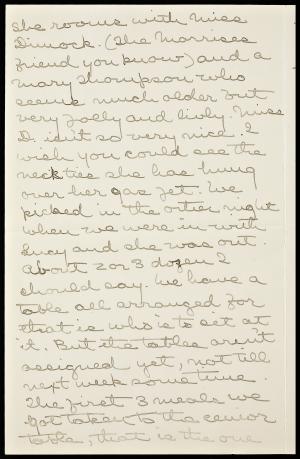 she rooms with Miss
Dimock. (The Morrises
friend you know) and a
Mary Thompson who
seems much older but
very jolly and livly. Miss
D. isn't so very nice. I
wish you could see the
neck ties she has hung
over her gas jet. We
picked in the other night
when we were in with
Lucy and she was out.
About 2 or 3 dozen I
should say. We have a
table all arranged for
that is who is to set at
it. But the tables aren't
assigned yet, not till
next week some time.
The first 3 meals we
got taken to the senior
table, that is the one